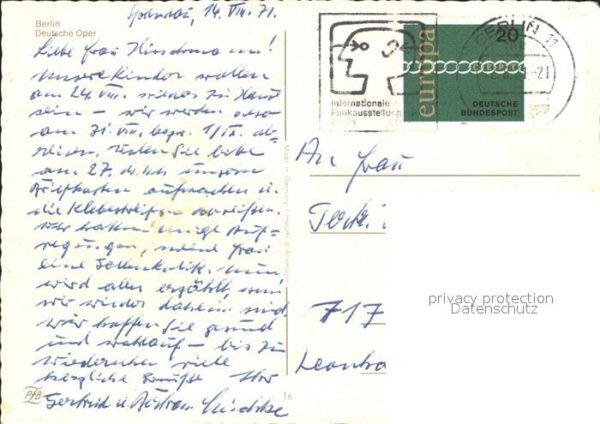 Spandau, 14. VIII. 71.
Berlin
Deutsche Oper
Liebe Frau
unsere Kinder wollen
am 24. VIII. wieder zu Haus
sein – wir werden also
am 31. VIII. bezw. 1/IX. ab-
reisen, wollen Sie bitte
am 27. d. Mts unsere
Briefkasten aufmachen u.
die Klebestreifen abreißen.
Wir hatten einige Auf-
regungen, meine Frau
eine Gallenkolik. nun
wird alles erzählt, wenn
wir wieder daheim sind
wir hoffen Sie gesund
und wohlauf – bis zum
Wiedersehen viele
herzliche Grüße Ihre
Gertrud u.
PfB
16
Internationale
Funkausstellung
BERLIN 11
europa
20
DEUTSCHE
BUNDESPOST
An Frau
717
Leonb
privacy protection
Datenschutz